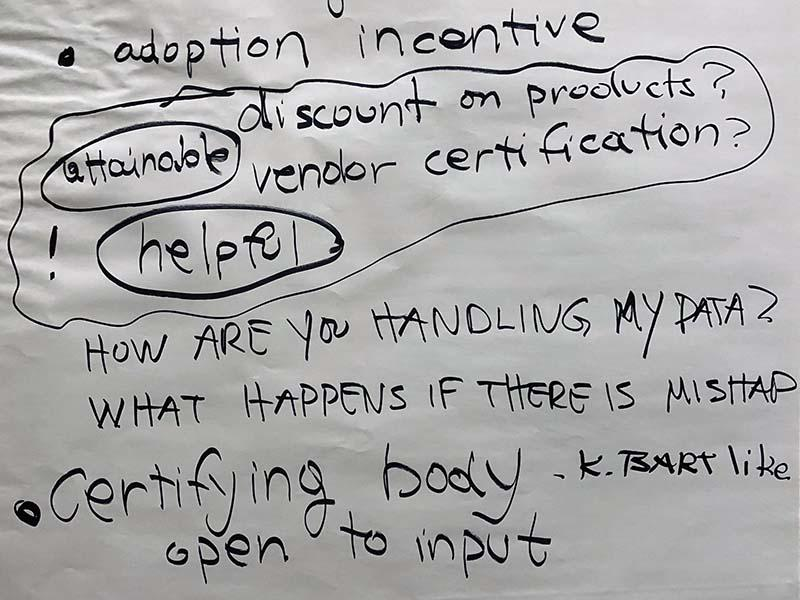 • adoption incentive
discount on products?
attainable vendor certification?
! helpful
HOW ARE YOU HANDLING MY DATA?
WHAT HAPPENS IF THERE IS MISHAP
• certifying body - K. BART like
open to input